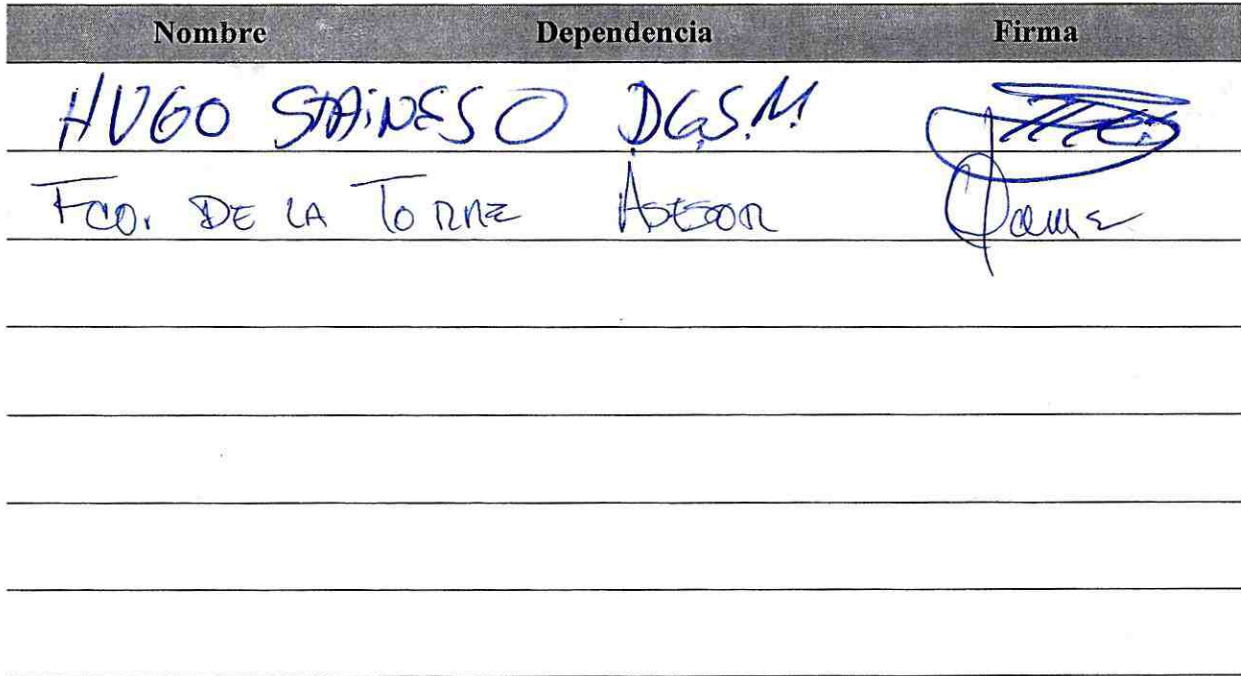 Nombre Dependencia Firma
HUGO STAINES O D.G.S.M.
Fco. DE LA TORRE ASESOR